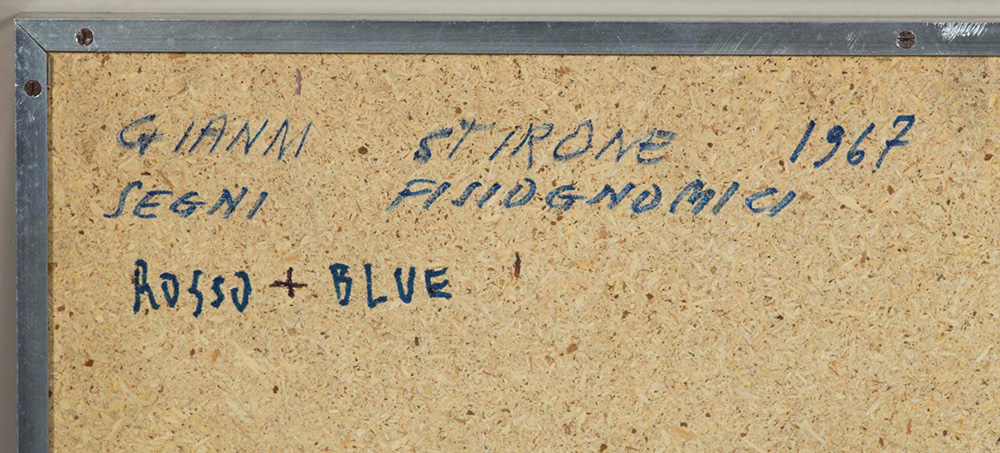 GIANNI STIRONE 1967
SEGNI FISIOGNOMICI
ROSSO + BLUE